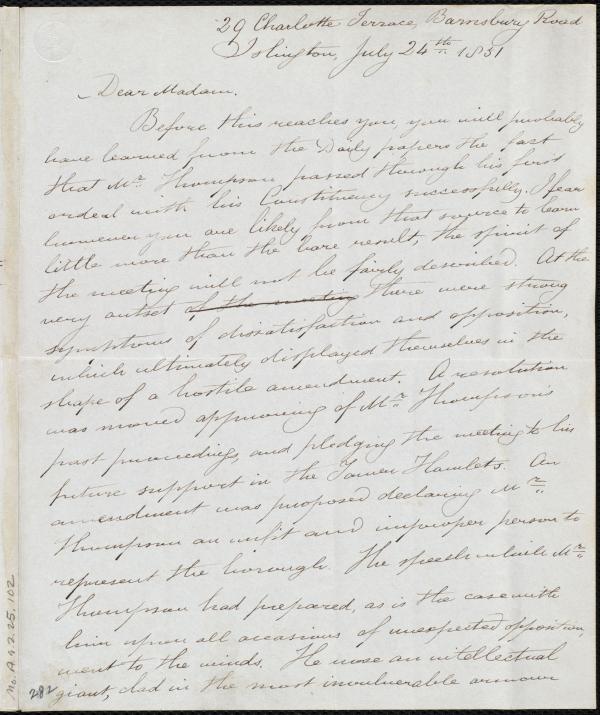 29 Charlotte Terrace, Barnsbury Road
Islington, July 24th 1851
Dear Madam.
Before this reaches you, you will probably
have learned from the Daily papers the fact
that Mr. Thompson passed through his first
ordeal with his Constituency successfully. I fear
however you are likely from that source to learn
little more than the bare result, the spirit of
the meeting will not be fairly described. At the
very outset of the meeting there were strong
symptoms of dissatisfaction and opposition,
which ultimately displayed themselves in the
shape of a hostile amendment. A resolution
was moved approving of Mr. Thompson's
past proceedings, and pledging the meeting to his
future support in the Tower Hamlets. An
amendment was proposed declaring Mr.
Thompson an unfit and improper person to
represent the borough. The speech which Mr.
Thompson had prepared, as is the case with
him upon all occasions of unexpected opposition,
went to the winds. He rose an intellectual
giant, clad in the most invulnerable armour
Ms. A. 9.2.25.102
282